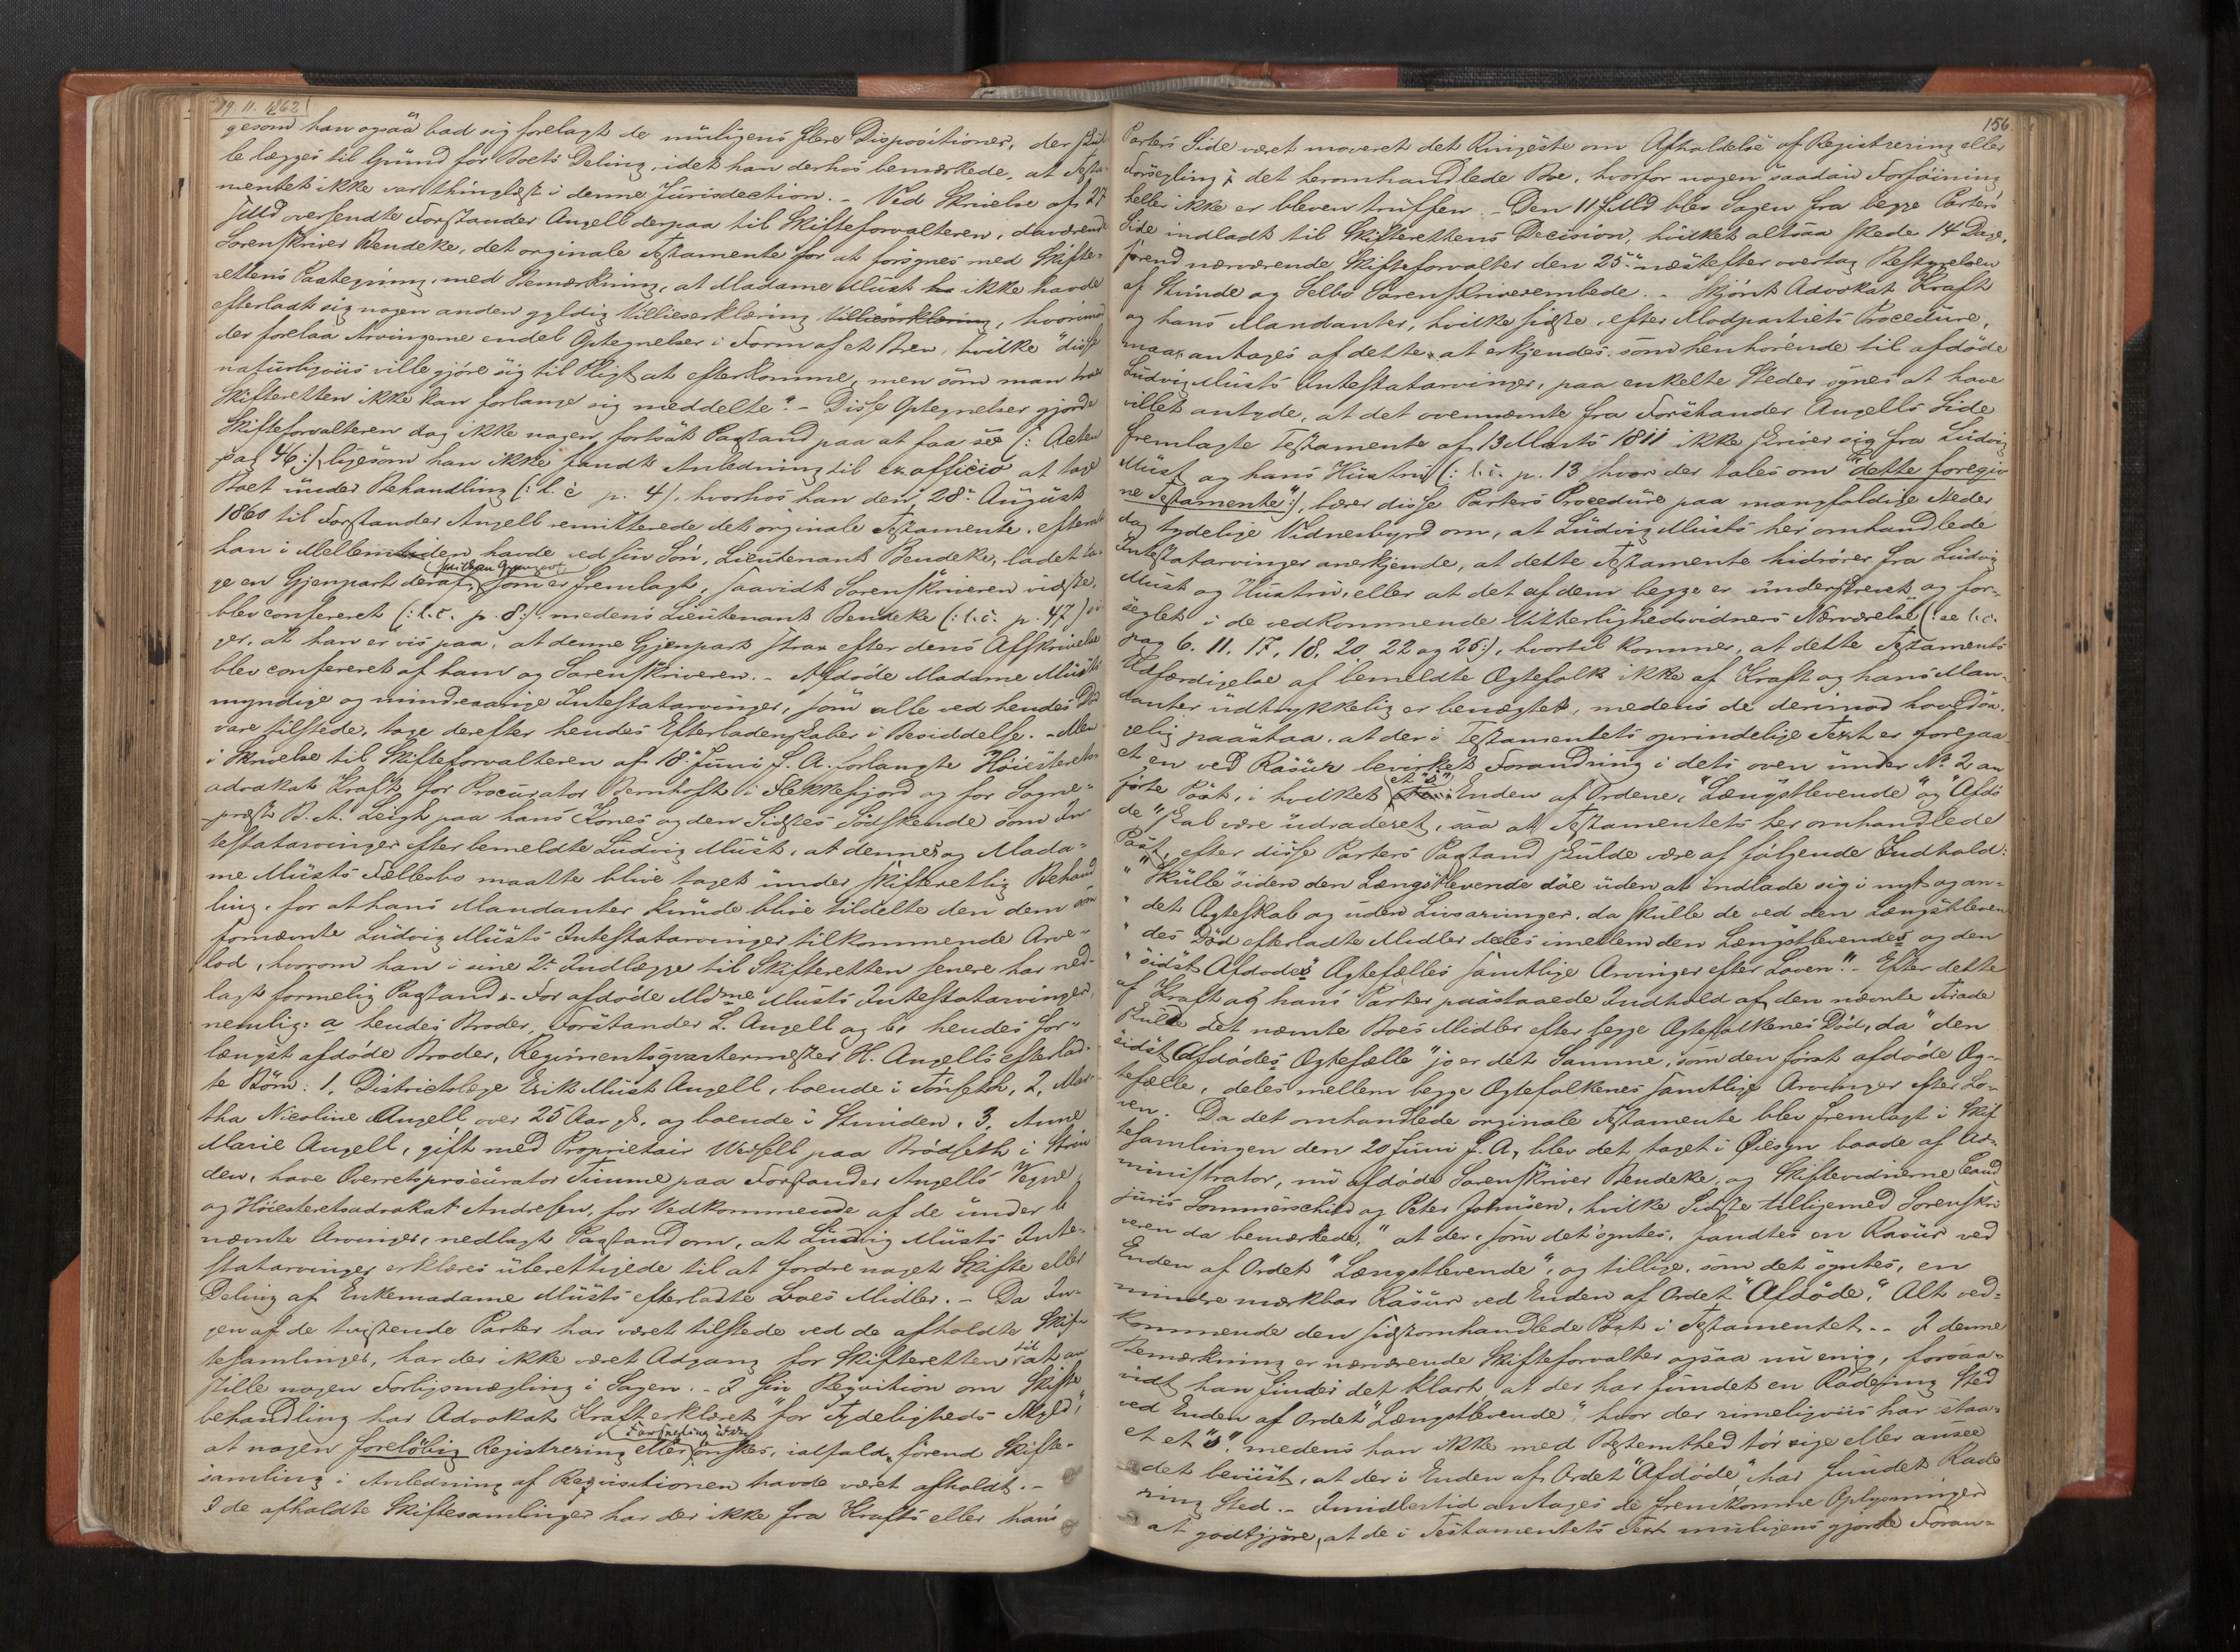 19. 11. 1862
gesom han ogsaa bad sig forelagt de muligens flere Dispositioner, der skul-
le lægges til Grund for Boets Deling, idet han derhos bemærkede, at Testa-
mentet ikke var thinglæst i denne Jurisdiction. - Ved Skrivelse af 27
s. Md oversendte Forstander Angell derpaa til Skifteforvalteren, daværende
Sorenskriver Bendeke, det orginale Testamente for at forsynes med Skifte-
rettens Paategning, med Bemærkning, at Madame Must ikke havde
efterladt sig nogen anden gyldig Villieserklæring Villieserklæring, hvorimod
der forelaa Arvingerne endel Optegnelser i Form af et Brev, hvilke "disse
naturligviis ville gjøre sig til Pligt at efterkomme, men som man troer
Skifteretten ikke kan forlange sig meddelte". - Disse Optegnelser gjorde
Skifteforvalteren dog ikke nogen fortsat Paastand paa at faa see (: Acten
pag 46:), ligesom han ikke fandt Anledning til ex officio at tage
Boet under Behandling (: l. c. p. 4), hvorhos han den 28de August
1860 til Forstander Angell remitterede det orginale Testamente, efterat
han i Mellemtiden havde ved sin Søn, Lieutenant Bendeke, ladet ta-
ge en Gjenpart deraf, hvilken Gjenpart som er fremlagt, saavidt Sorenskriveren vidste,
blev confereret (: l. c. p. 8:) medens Lieutenant Bendeke (: l. c. p. 47)
ger, at han er vis paa, at denne Gjenpart strax efter dens Afskrivelse
blev confereret af ham og Sorenskriveren. - Afdøde Madame Musts
myndige og mindreaarige Intestatarvinger, som alle ved hendes Død
vare tilstede, toge derefter hendes Efterladenskaber i Besiddelse. - Men
i Skrivelse til Skifteforvalteren af 18de Juni f. A. forlangte Høiesterets-
advokat Kraft, for Procurator Bernhoft i Flekkefjord og for Sogne-
præst B. A. Leigh paa hans Kones og den Sidstes Sødskende som In-
testatarvinger efter bemeldte Ludvig Must, at dennes og Mada-
me Musts Fællesbo maatte blive taget under skifteretlig Behand
ling, for at hans Mandanter kunde blive tildelte den dem som
fornævnte Ludvig Musts Intestatarvinger tilkommende Arve-
lod, hvorom han i sine 2de Indlægge til Skifteretten senere har ned-
lagt formelig Paastand. - For afdøde Mdme Musts Intestatarvinger,
nemlig: a hendes Broder, Forstander L. Angell og b, hendes for-
længst afdøde Broder, Regimentsqvartermester H. Angells efterlad-
te Børn: 1, Districtslæge Erik Must Angell, boende i Tønseth, 2, Mar-
tha Nicoline Angell, over 25 Aar gl. og boende i Strinden, 3, Anne
Marie Angell, gift med Proprietair Wessell paa Brødseth i Strin
den, have Overretsprocurator Timme paa Forstander Angells Vegne,
og Høiesteretsadvokat Andresen, for Vedkommende af de under b
nævnte Arvinger, nedlagt Paastand om, at Ludvig Musts Inte-
statarvinger erklæres uberettigede til at fordre noget Skifte eller
Deling af Enkemadame Musts efterladte Boes Midler. - Da In-
gen af de tvistende Parter har været tilstede ved de afholdte Skif-
tesamlinger, har der ikke været Adgang for Skifteretten til at an
stille nogen Forligsmægling i Sagen. - I sin Reqvition om Skifte
behandling har Advokat Kraft erklæret "for Tydeligheds Skyld",
at nogen foreløbig Registrering eller Forsegling ikke ønskes, ialfald, førend Skifte-
samling i Anledning af Reqvisitionen havde været afholdt. -
I de afholdte Skiftesamlinger har der ikke fra Krafts eller hans
156.
Parters Side været moveret det Ringeste om Afholdelse af Registrering eller
Forsegling i det heromhandlede Boe, hvorfor nogen saadan Forføining
heller ikke er bleven truffen. - Den 11 f. Md blev Sagen fra begge Parters
Side indladt til Skifterettens Decision, hvilket altsaa skede 14 Dage,
førend nærværende Skifteforvalter den 25de næstefter overtog Bestyrelsen
af Strinde og Selbo Sorenskriverembede. - Skjønt Advokat Kraft
og hans Mandanter, hvilke sidste, efter Modpartiets Procedure,
maa antages af dette, at erkjendes, som henhørende til afdøde
Ludvig Musts Intestatarvinger, paa enkelte Steder synes at have
villet antyde, at det ovennævnte fra Forstander Angells Side
fremlagte Testamente af 13 Marts 1811 ikke skriver sig fra Ludvig
Must og hans Hustru (: l. c. p. 13, hvor der tales om "dette foregiv
ne Testamente":), bærer disse Parters Procedure paa mangfoldige Steder
dog tydelige Vidnesbyrd om, at Ludvig Musts her omhandlede
Intestatarvinger anerkjende, at dette Testamente hidrører fra Ludvig
Must og Hustru, eller at det af dem begge er underskrevet og for-
seglet i de vedkommende Vitterlighedsvidners Nærværelse (: se l. c.
pag 6. 11. 17. 18. 20. 22 og 26:), hvortil kommer, at dette Testaments
Udfærdigelse af bemeldte Ægtefolk ikke af Kraft og hans Man-
danter udtrykkelig er benægtet, medens de derimod hovedsa-
gelig paastaa, at der i Testamentets oprindelige Text er foregaa-
et en ved Rasur bevirket Forandring i dets oven under No 2 an
førte Post, i hvilket et "s" i Enden af Ordene, "Længstlevende" og "Afdø
de" skal være udraderet, saa at Testamentets her omhandlede
Post, efter disse Parters Paastand skulde være af følgende Indhold:
"Skulle siden den Længstlevende døe uden at indlade sig i nyt og an-
"det Ægteskab og uden Livsarvinger, da skulle de ved den Længstleven
"des Død efterladte Midler deles imellem den Længstlevendes og den
"sidst Afdødes Ægtefælles samtlige Arvinger efter Loven". - Efter dette
af Kraft og hans Parter paastaaede Indhold af den nævnte Tirade
skulde det nævnte Boes Midler efter begge Ægtefolkenes Død, da "den
sidst Afdødes Ægtefælle" jo er det Samme, som den først afdøde Æg-
tefælle, deles mellem begge Ægtefolkenes samtlige Arvinger efter Lo-
ven. Da det omhandlede orginale Testamente blev fremlagt i Skif
tesamlingen den 20 Juni f. A., blev det taget i Øiesyn baade af Ad-
ministrator, nu afdøde Sorenskriver Bendeke, og Skiftevidnerne Cand
juris Sommerschild og Peter Johnsen, hvilke Sidste tilligemed Sorenskri
veren da bemærkede, "at der, som det syntes, fandtes en Rasur ved
Enden af Ordet "Længstlevende", og tillige, som det syntes, en
mindre mærkbar Rasur ved Enden af Ordet "Afdøde". Alt ved-
kommende den sidstomhandlede Post i Testamentet. - I denne
Bemærkning er nærværende Skifteforvalter ogsaa nu enig, forsaa-
vidt han finder det klart, at der har fundet en Radering Sted
ved Enden af Ordet "Længstlevende", hvor der rimeligviis har staa-
et et "s", medens han ikke med Bestemthed tør sige eller ansee
det beviist, at der i Enden af Ordet "Afdøde" har fundet Rade
ring Sted. - Imidlertid antages de fremkomne Oplysninger
at godtgjøre, at de i Testamentets Text muligens gjorte Foran-